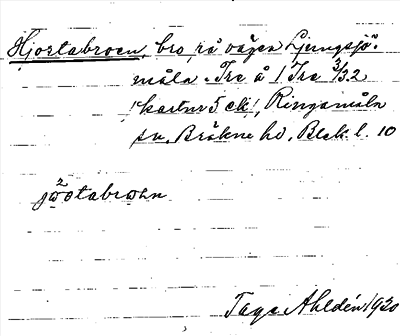 Hjortabroen, bro, på vägen Ljungsjö-
måla - Tre å 1 Tre 3/32
! kartur 5 ek!, Ringamåla
sn, Bräkne hd, Blek. l. 10
Tage Ahldén 1930